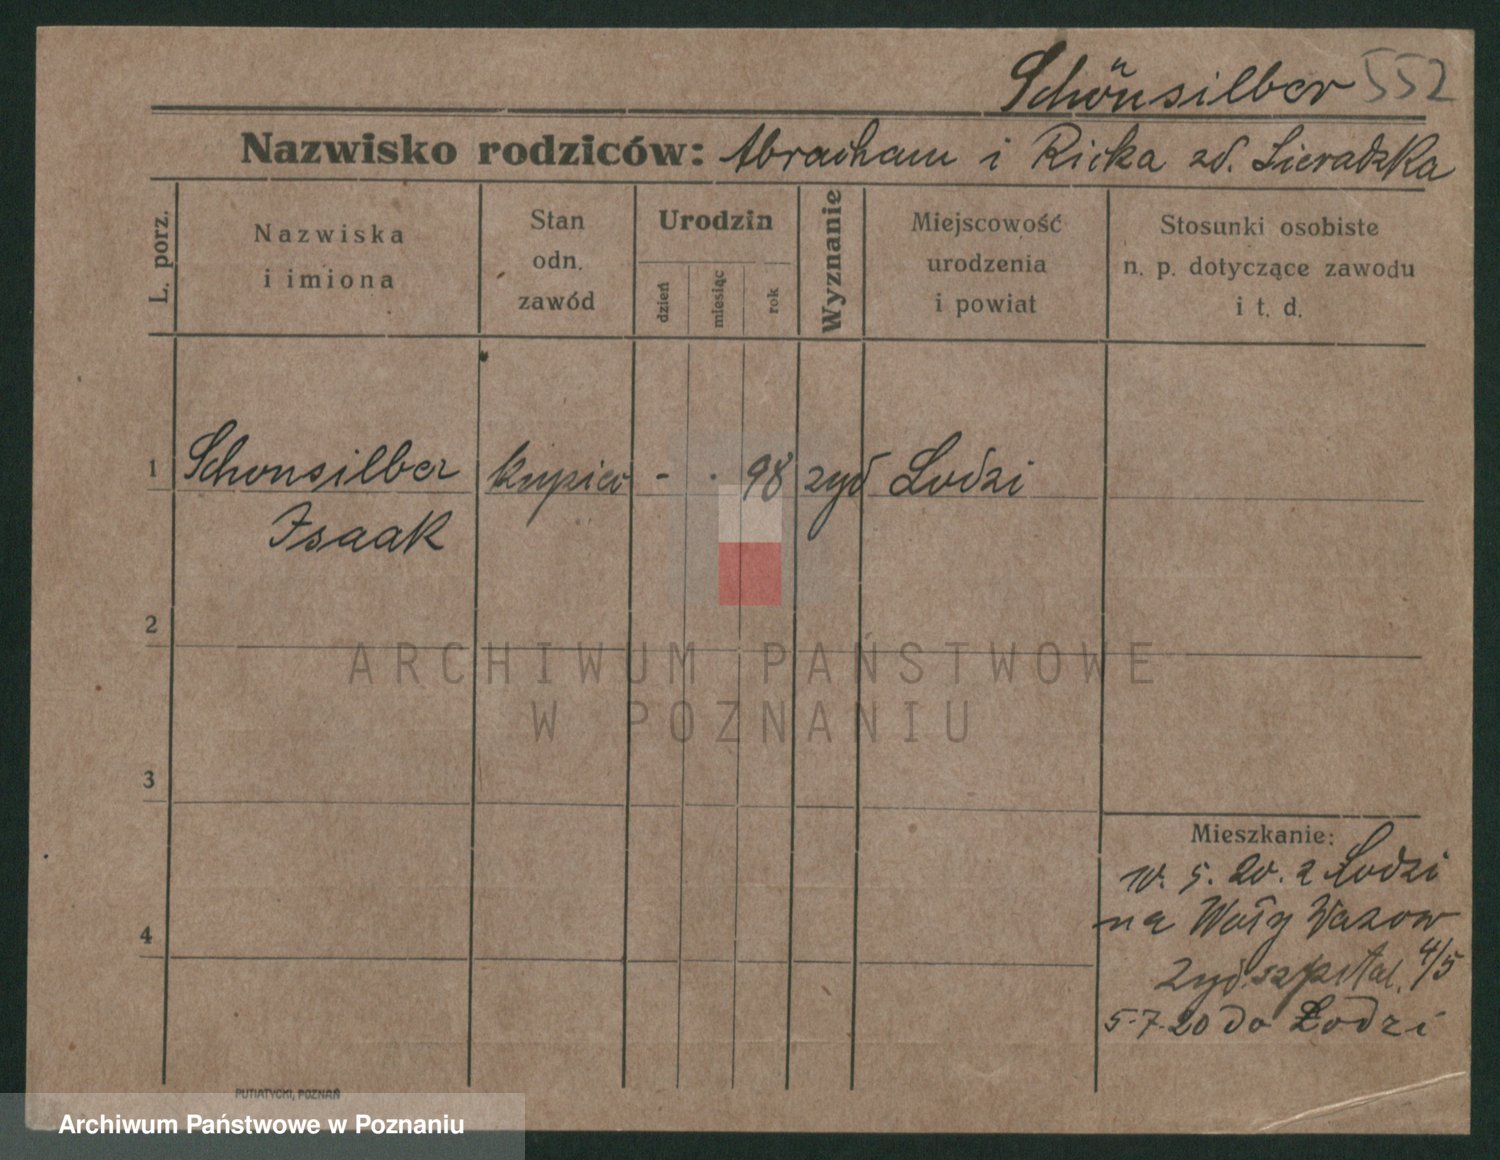 Schönsilber 552
Nazwisko rodziców: Abracham i Ricka zd. Sieradzka
L. porz.
Nazwiska
i imiona
Stan
odn.
zawód
Urodzin
dzień
miesiąc
rok
Wyznanie
Miejscowość
urodzenia
i powiat
Stosunki osobiste
n. p. dotyczące zawodu
i t. d.
1 Schonsilber kupiec - . 98 zyd Lodzi
Isaak
2
ARCHIWUM PAŃSTWOWE
W POZNANIU
3
Mieszkanie:
10. 5. 20. z Lodzi
na Wały Wazow
4
zyd. szpital. 4/5
5-7-20 do Łodzi
PUTIATYCKI, POZNAŃ
Archiwum Państwowe w Poznaniu